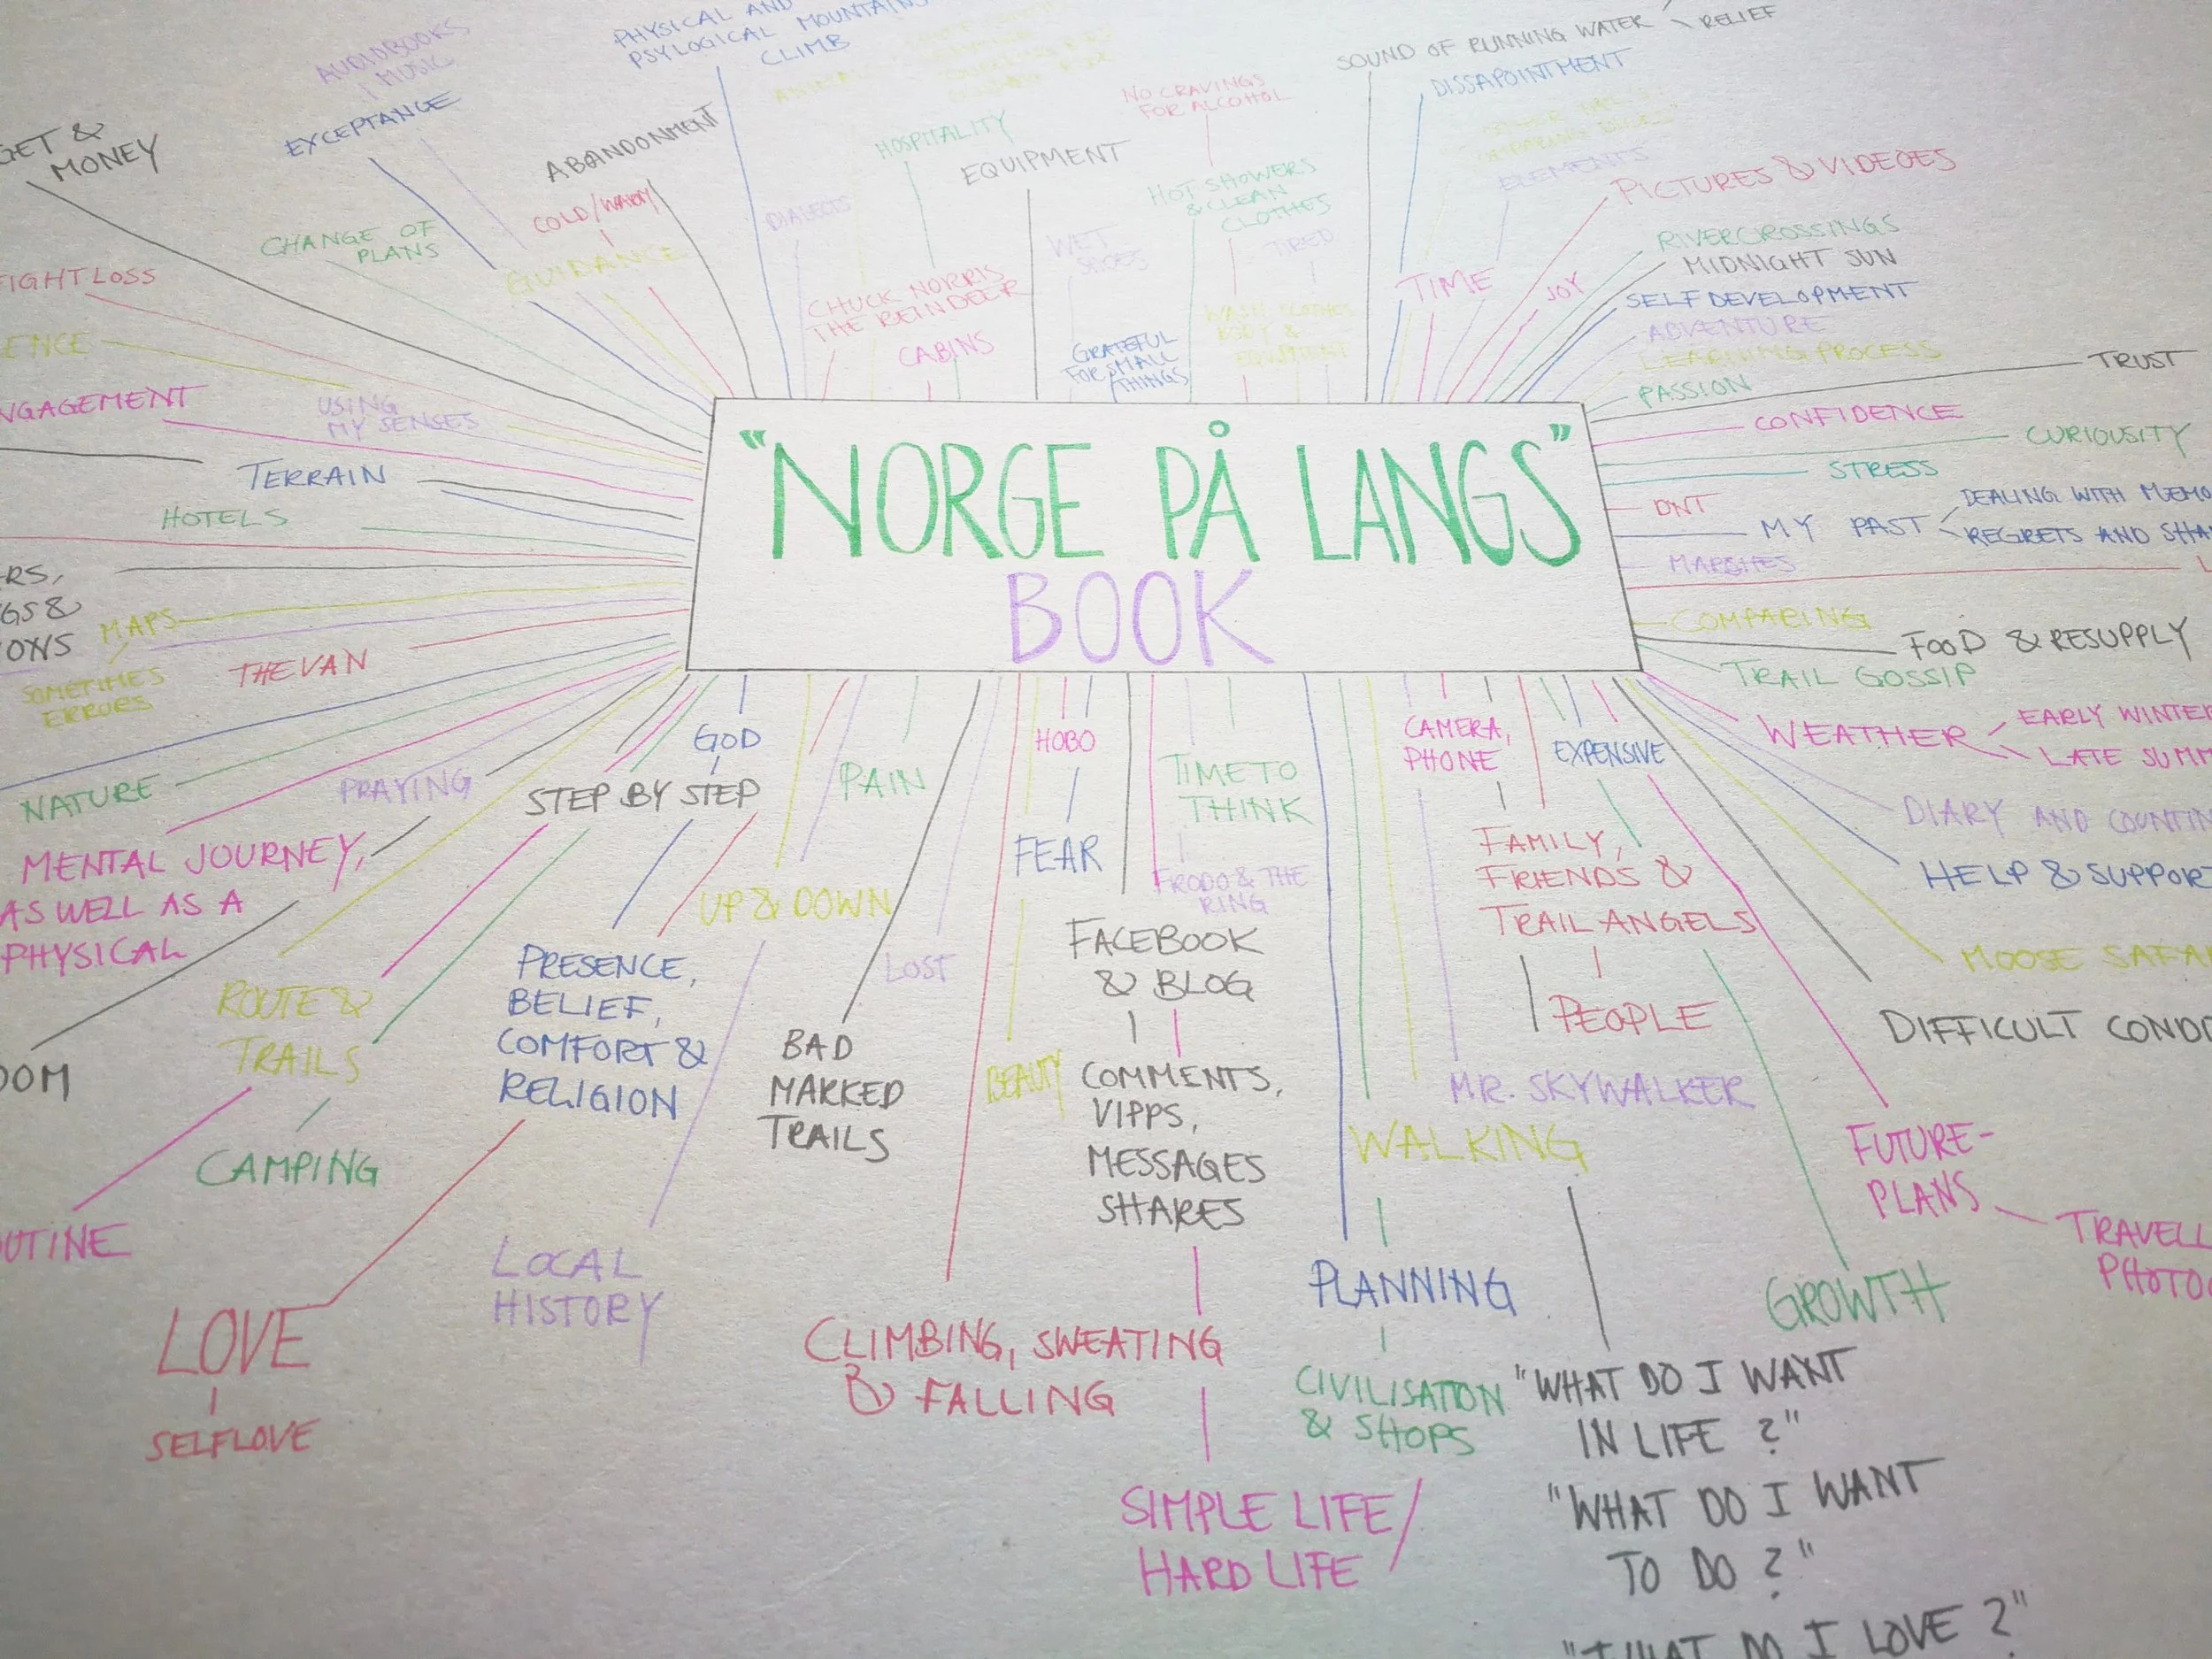 AUDIOBOOKS
MUSIC
PHYSICAL AND
PSYLOGICAL MOUNTAINS
CLIMB
SOUND OF RUNNING WATER
RELIEF
DISSAPOINTMENT
NO CRAVINGS
FOR ALCOHOL
EXCEPTANGE
GET &
MONEY
ABANDONMENT
HOSPITALITY
EQUIPMENT
ELEMENTS
PICTURES & VIDEOES
COLD/WARM
DIALECTS
HOT SHOWERS
& CLEAN
CLOTHES
CHANGE OF
PLANS
GUIDANCE
WET
SHOES
TIRED
RIVERCROSSINGS
MIDNIGHT SUN
TIME
JOY
SELF DEVELOPMENT
IGHT LOSS
CHUCK NORRIS
THE REINDEER
CABINS
WASH CLOTHES
BODY &
EQUIPMENT
GRATEFUL
FOR SMALL
THINGS
ADVENTURE
LEARNING PROCESS
ENCE
PASSION
TRUST
NGAGEMENT
USING
MY SENSES
CONFIDENCE
CURIOUSITY
TERRAIN
STRESS
HOTELS
DNT
MY PAST
DEALING WITH MEMO
REGRETS AND SHA
MARSHES
"NORGE PÅ LANGS"
BOOK
RS,
GS &
ONS
MAPS
SOMETIMES
ERRORS
THE VAN
COMPARING
FOOD & RESUPPLY
TRAIL GOSSIP
WEATHER
EARLY WINTER
LATE SUMM
GOD
HOBO
CAMERA,
PHONE
EXPENSIVE
NATURE
PRAYING
STEP BY STEP
PAIN
TIME TO
THINK
DIARY AND COUNTIN
MENTAL JOURNEY,
AS WELL AS A
PHYSICAL
FEAR
FRODO & THE
RING
FAMILY,
FRIENDS &
TRAIL ANGELS
HELP & SUPPOR
UP & DOWN
FACEBOOK
& BLOG
LOST
MOOSE SAFA
ROUTE &
TRAILS
PRESENCE,
BELIEF,
COMFORT &
RELIGION
PEOPLE
DIFFICULT COND
OOM
BAD
MARKED
TRAILS
BEAUTY
COMMENTS,
VIPPS,
MESSAGES
SHARES
MR. SKYWALKER
WALKING
CAMPING
FUTURE-
PLANS
TRAVELL
PHOTO
UTINE
LOCAL
HISTORY
PLANNING
GROWTH
LOVE
SELFLOVE
CLIMBING, SWEATING
& FALLING
CIVILISATION
& SHOPS
"WHAT DO I WANT
IN LIFE ?"
SIMPLE LIFE/
HARD LIFE
"WHAT DO I WANT
TO DO ?"
"WHAT DO I LOVE ?"